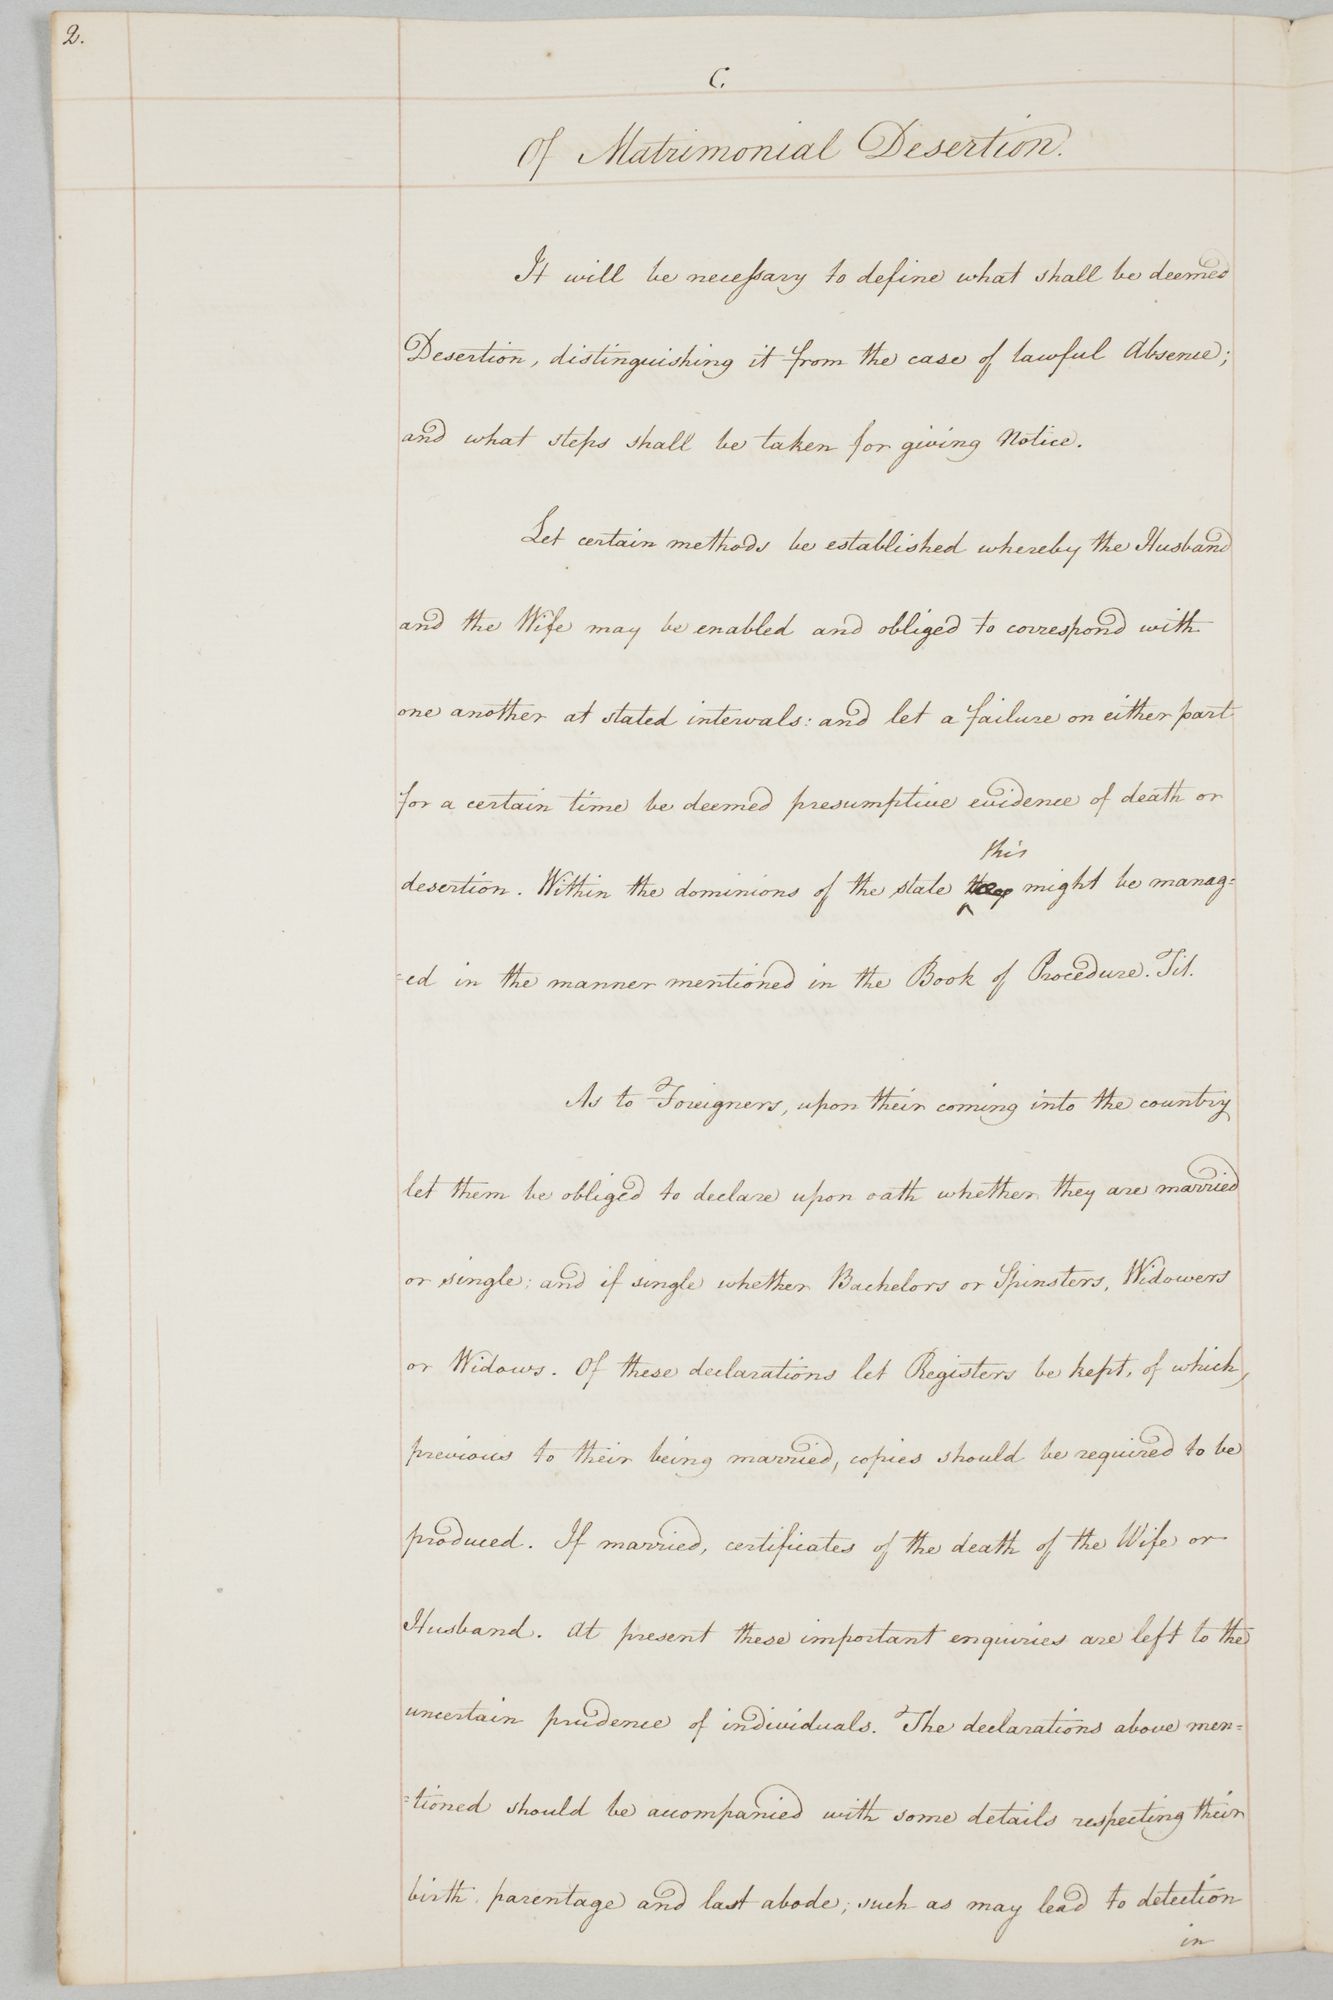 2.
C.
Of Matrimonial Desertion.
It will be necessary to define what shall be deemed
Desertion, distinguishing it from the case of lawful Absence;
and what steps shall be taken for giving Notice.
Let certain methods be established whereby the Husband
and the Wife may be enabled and obliged to correspond with
one another at stated intervals: and let a failure on either part
for a certain time be deemed presumptive evidence of death or
this
desertion. Within the dominions of the state might be manag=
=ed in the manner mentioned in the Book of Procedure. Tit.
As to Foreigners, upon their coming into the country
let them be obliged to declare upon oath whether they are married
or single; and if single whether Bachelors or Spinsters, Widowers
or Widows. Of these declarations let Registers be kept, of which,
previous to their being married, copies should be required to be
produced. If married, certificates of the death of the Wife or
Husband. At present these important enquiries are left to the
uncertain prudence of individuals. The declarations above men=
=tioned should be accompanied with some details respecting their
birth parentage and last abode; such as may lead to detection
in